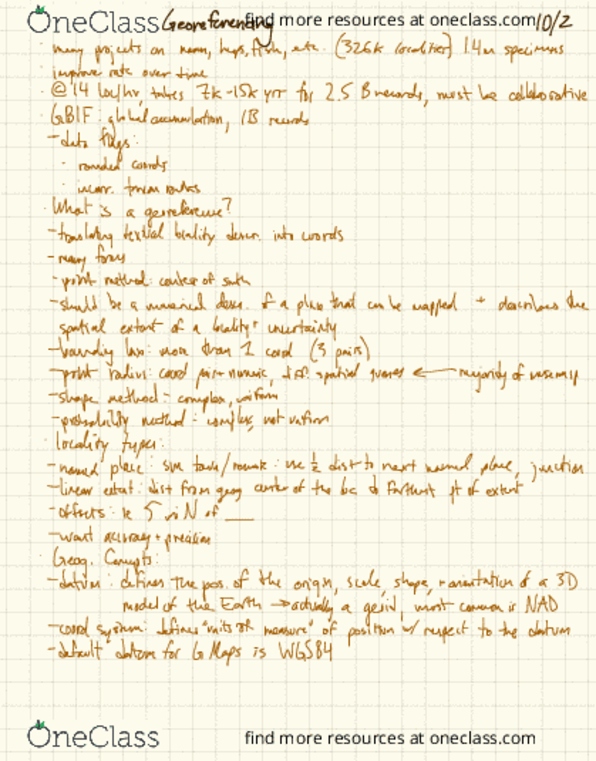 OneClass Georeferencing find more resources at oneclass.com 10/2
· many projects on mam, herps, fish, etc. (326k localities) 1.4m specimens
· improve rate over time
· @ 14 loc/hr, takes 7k-15k yrs for 2.5 B records, must be collaborative
· GBIF: global accumulation, 1B records
- data flags:
· rounded coords
· incorr.
· What is a georeference?
- translating textual locality descr. into coords
- many forms
- point method: center of
- should be a numerical descr. of a place that can be mapped + describes the
spatial extent of a locality + uncertainty
- bounding box: more than 1 coord (3 pairs)
- point radius: coord pair + numeric, diff. spatial ← majority of
- shape method - complex, uniform
- probability method - complex, not uniform
· locality types:
- named place: town/ : use ½ dist to next named place, junction
- linear extent: dist from geog center of the loc to farthest pt of extent
- offsets: ie 5 mi N of ___
- want accuracy + precision
· Geog. Concepts:
- datum: defines the pos. of the origin, scale, shape, + orientation of a 3D
model of the Earth → actually a geoid, most common is NAD
- coord system: defines "units of measure" of position w/ respect to the datum
- default datum for G Maps is WGS84
OneClass find more resources at oneclass.com